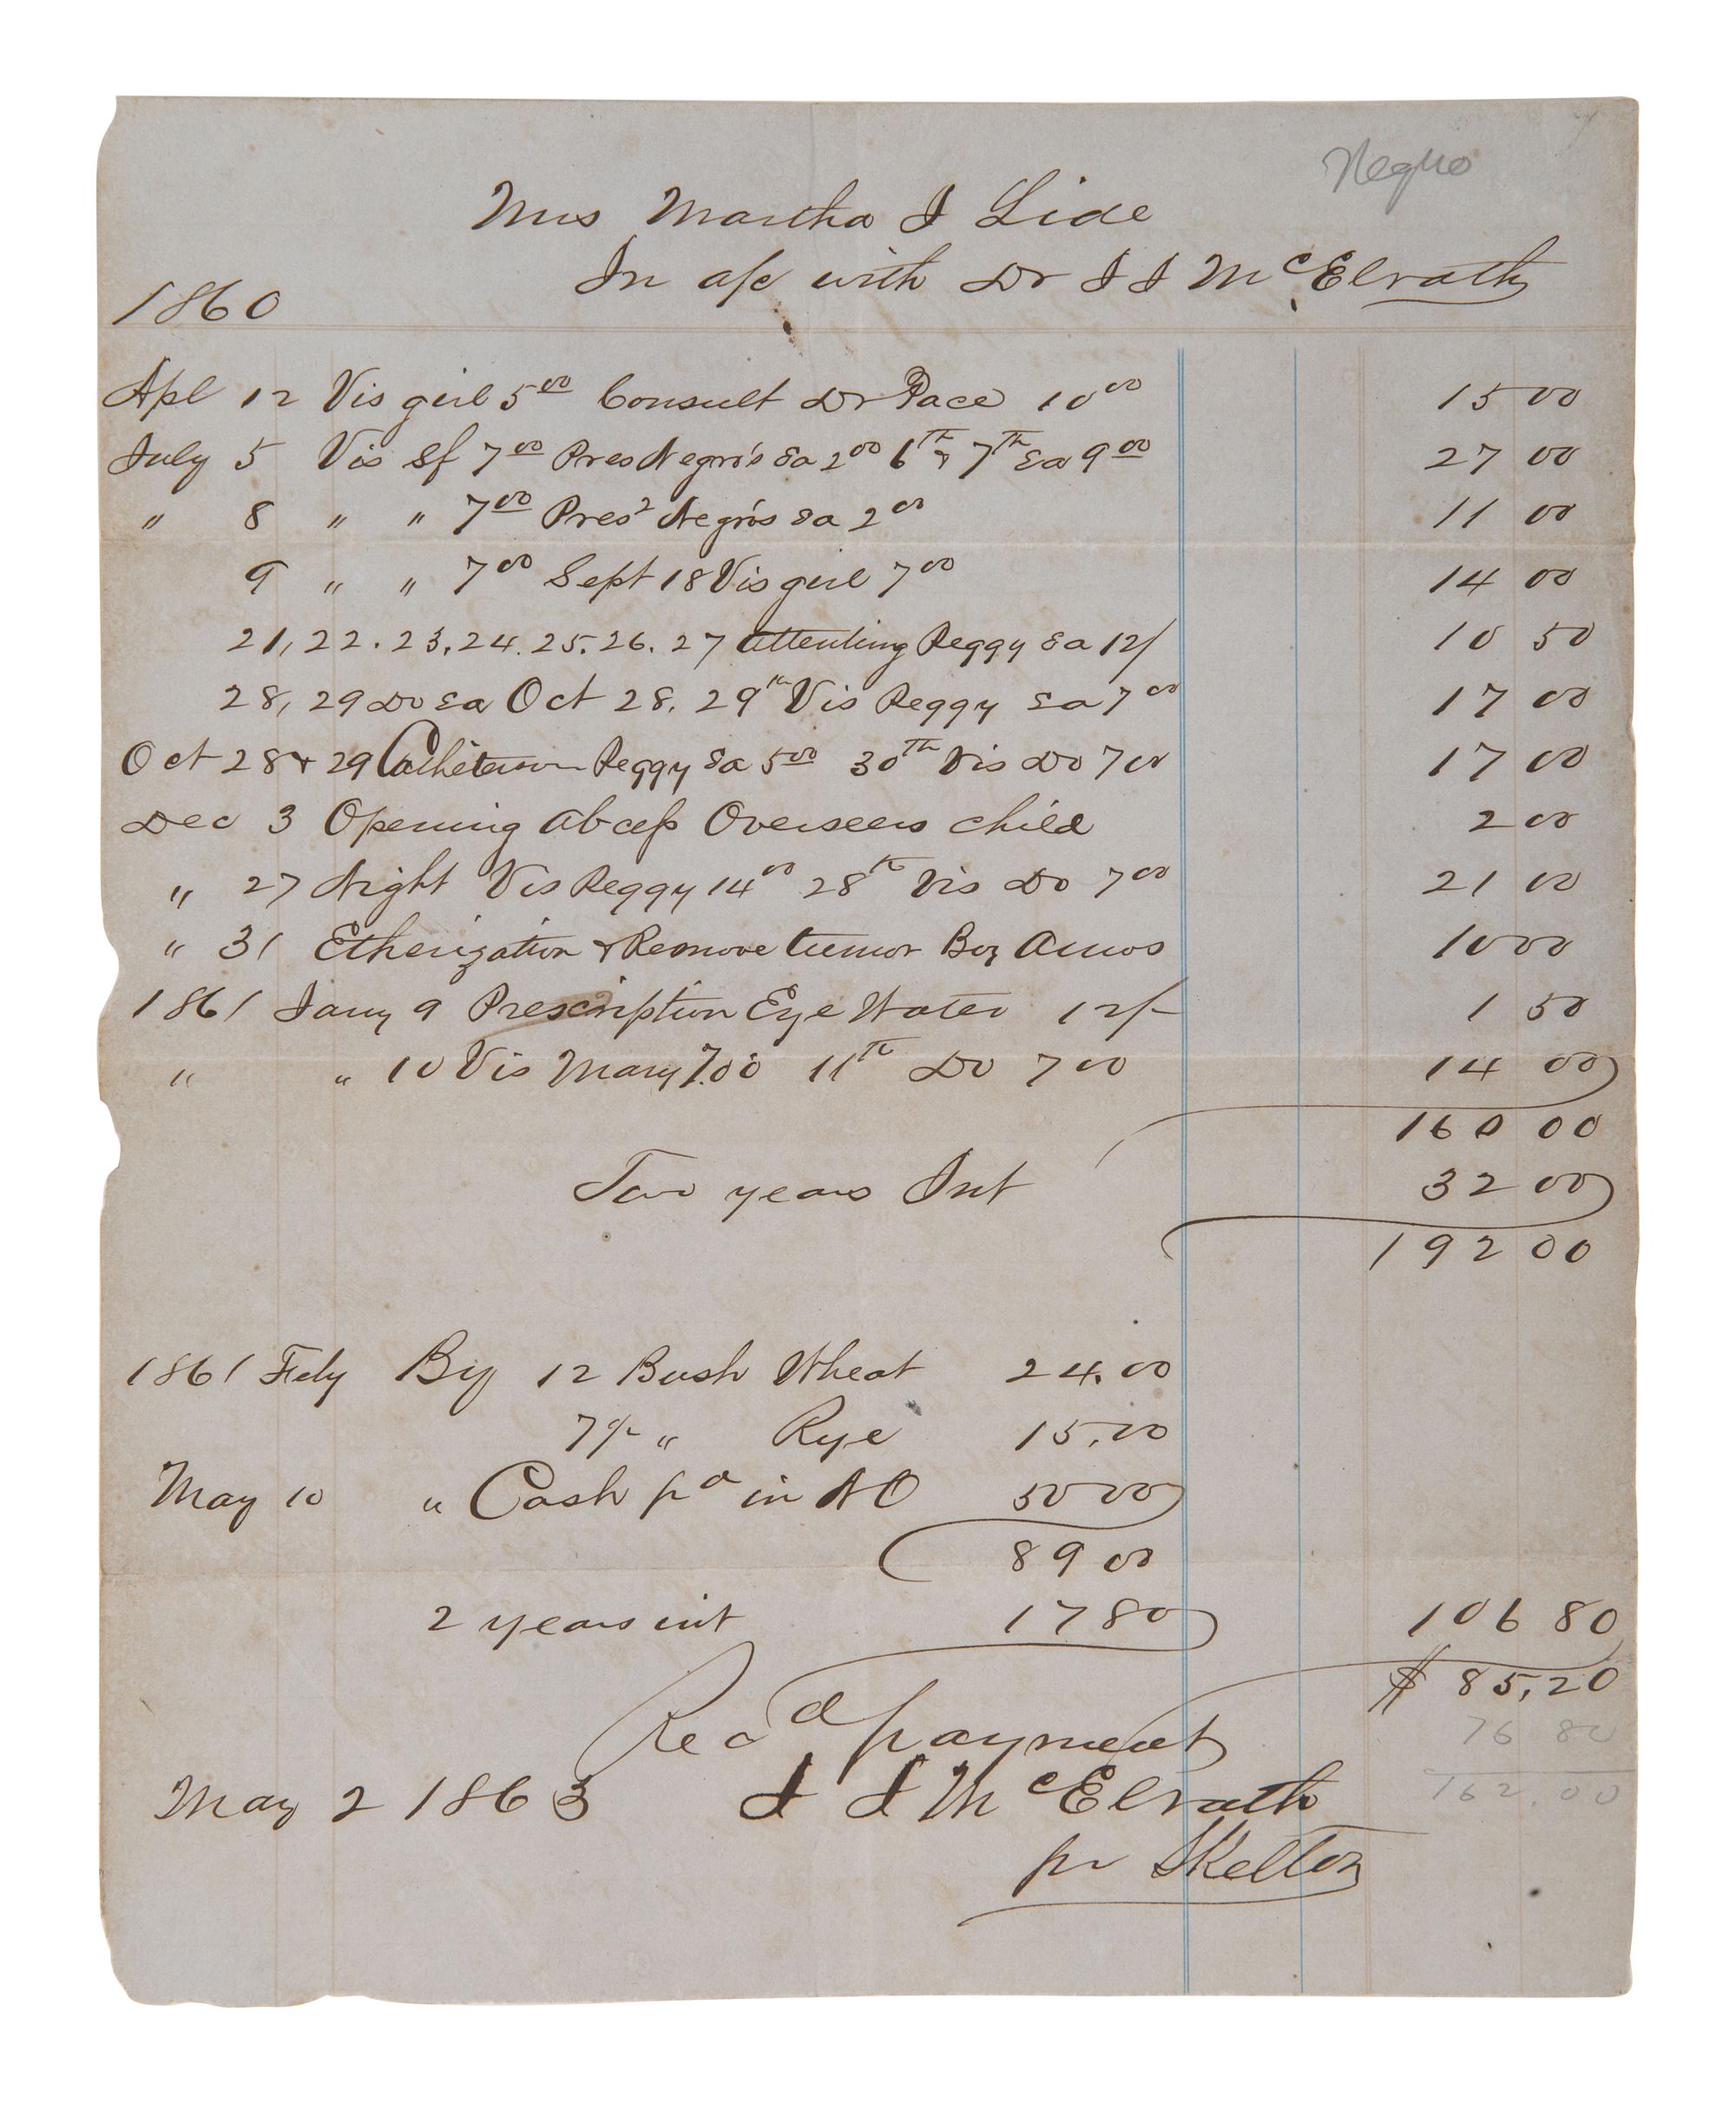 Negro
Mrs Martha J Lide
In a/c with Dr J J McElrath
1860
Apl 12 Vis girl 5 00 Consult Dr Pace 10 00 15 00
July 5 Vis Sf 7 00 Pres Negro's Ea 2 00 6th & 7th Ea 9 00 27 00
" 8 " " 7 00 Pres 2 Negro's Ea 2 00 11 00
9 " " 7 00 Sept 18 Vis girl 7 00 14 00
21, 22. 23, 24. 25. 26. 27 Attending Peggy Ea 12/ 10 50
28, 29 Do Ea Oct 28. 29th Vis Peggy Ea 7 00 17 00
Oct 28 & 29 Peggy Ea 5 00 30th Vis Do 7 00 17 00
Dec 3 Opening Abcess Overseers child 2 00
" 27 Night Vis Peggy 14 00 28th Vis Do 7 00 21 00
" 31 Etherization & Remove tumor Boy Amos 10 00
1861 Jany 9 Prescription Eye Water 12/ 1 50
" " 10 Vis Mary 7.00 11th Do 7 00 14 00
160 00
Two years Int 32 00
192 00
1861 Feby By 12 Bush Wheat 24.00
7½ " Rye 15.00
May 10 " Cash pd in NO 50 00
89 00
2 years int 17 80 106 80
$ 85,20
Recd payment 76 80
162.00
May 2 1863 J J McElrath
pr Skelton